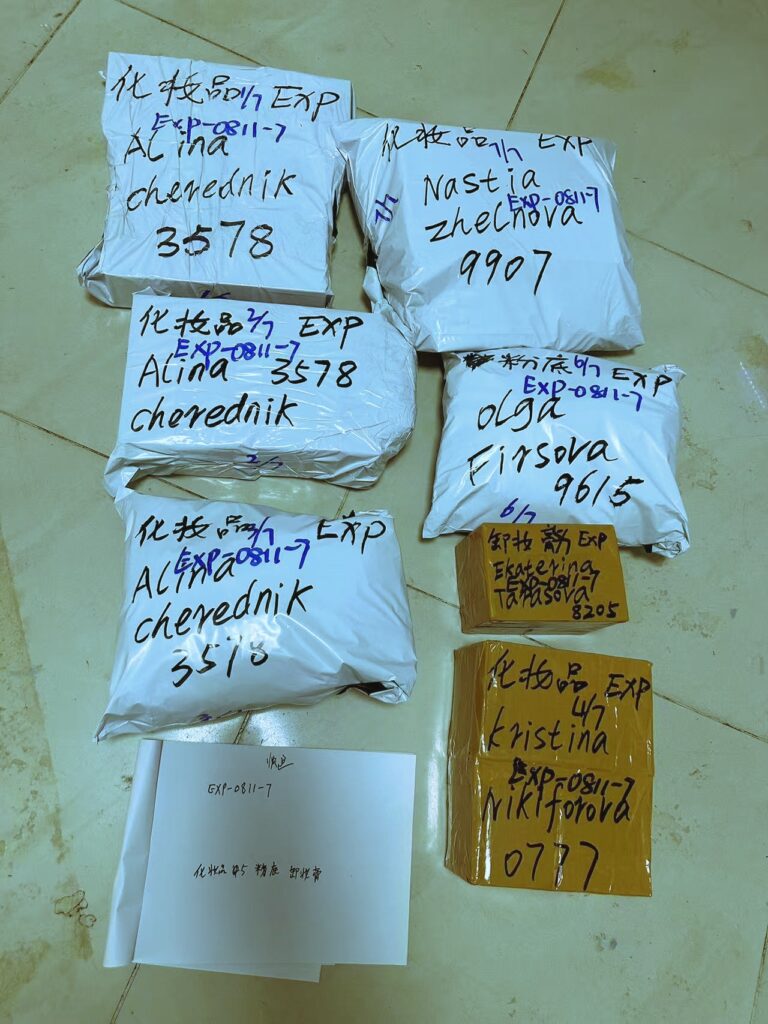 化妆品1/7 EXP
EXP-0811-7
Alina
cherednik
3578
化妆品 EXP
7/7
Nastia
EXP-0811-7
zhelnova
9907
7/7
化妆品2/7 EXP
EXP-0811-7
Alina 3578
cherednik
2/7
粉底 6/7 EXP
EXP-0811-7
olga
Firsova
9615
6/7
化妆品3/7 EXP
EXP-0811-7
Alina
cherednik
3578
卸妆膏 EXP
Ekaterina
EXP-0811-7
Tarasova
8205
化妆品 EXP
4/7
kristina
EXP-0811-7
Nikiforova
0777
EXP-0811-7
化妆品 #5 粉底 卸妆膏